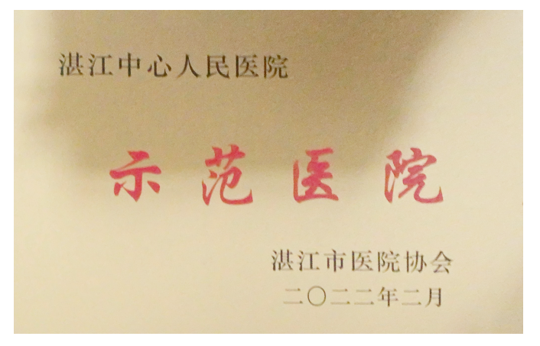 湛江中心人民医院
示范医院
湛江市医院协会
二〇二二年二月